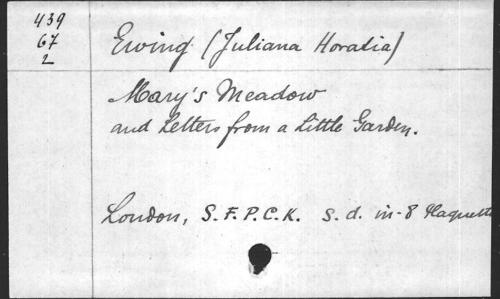 439
67
2
Ewing (Juliana Horatia)
Mary's Meadow
and Letters from a Little Garden.
London, S.F.P.C.K. s.d. in-8 Plaquette